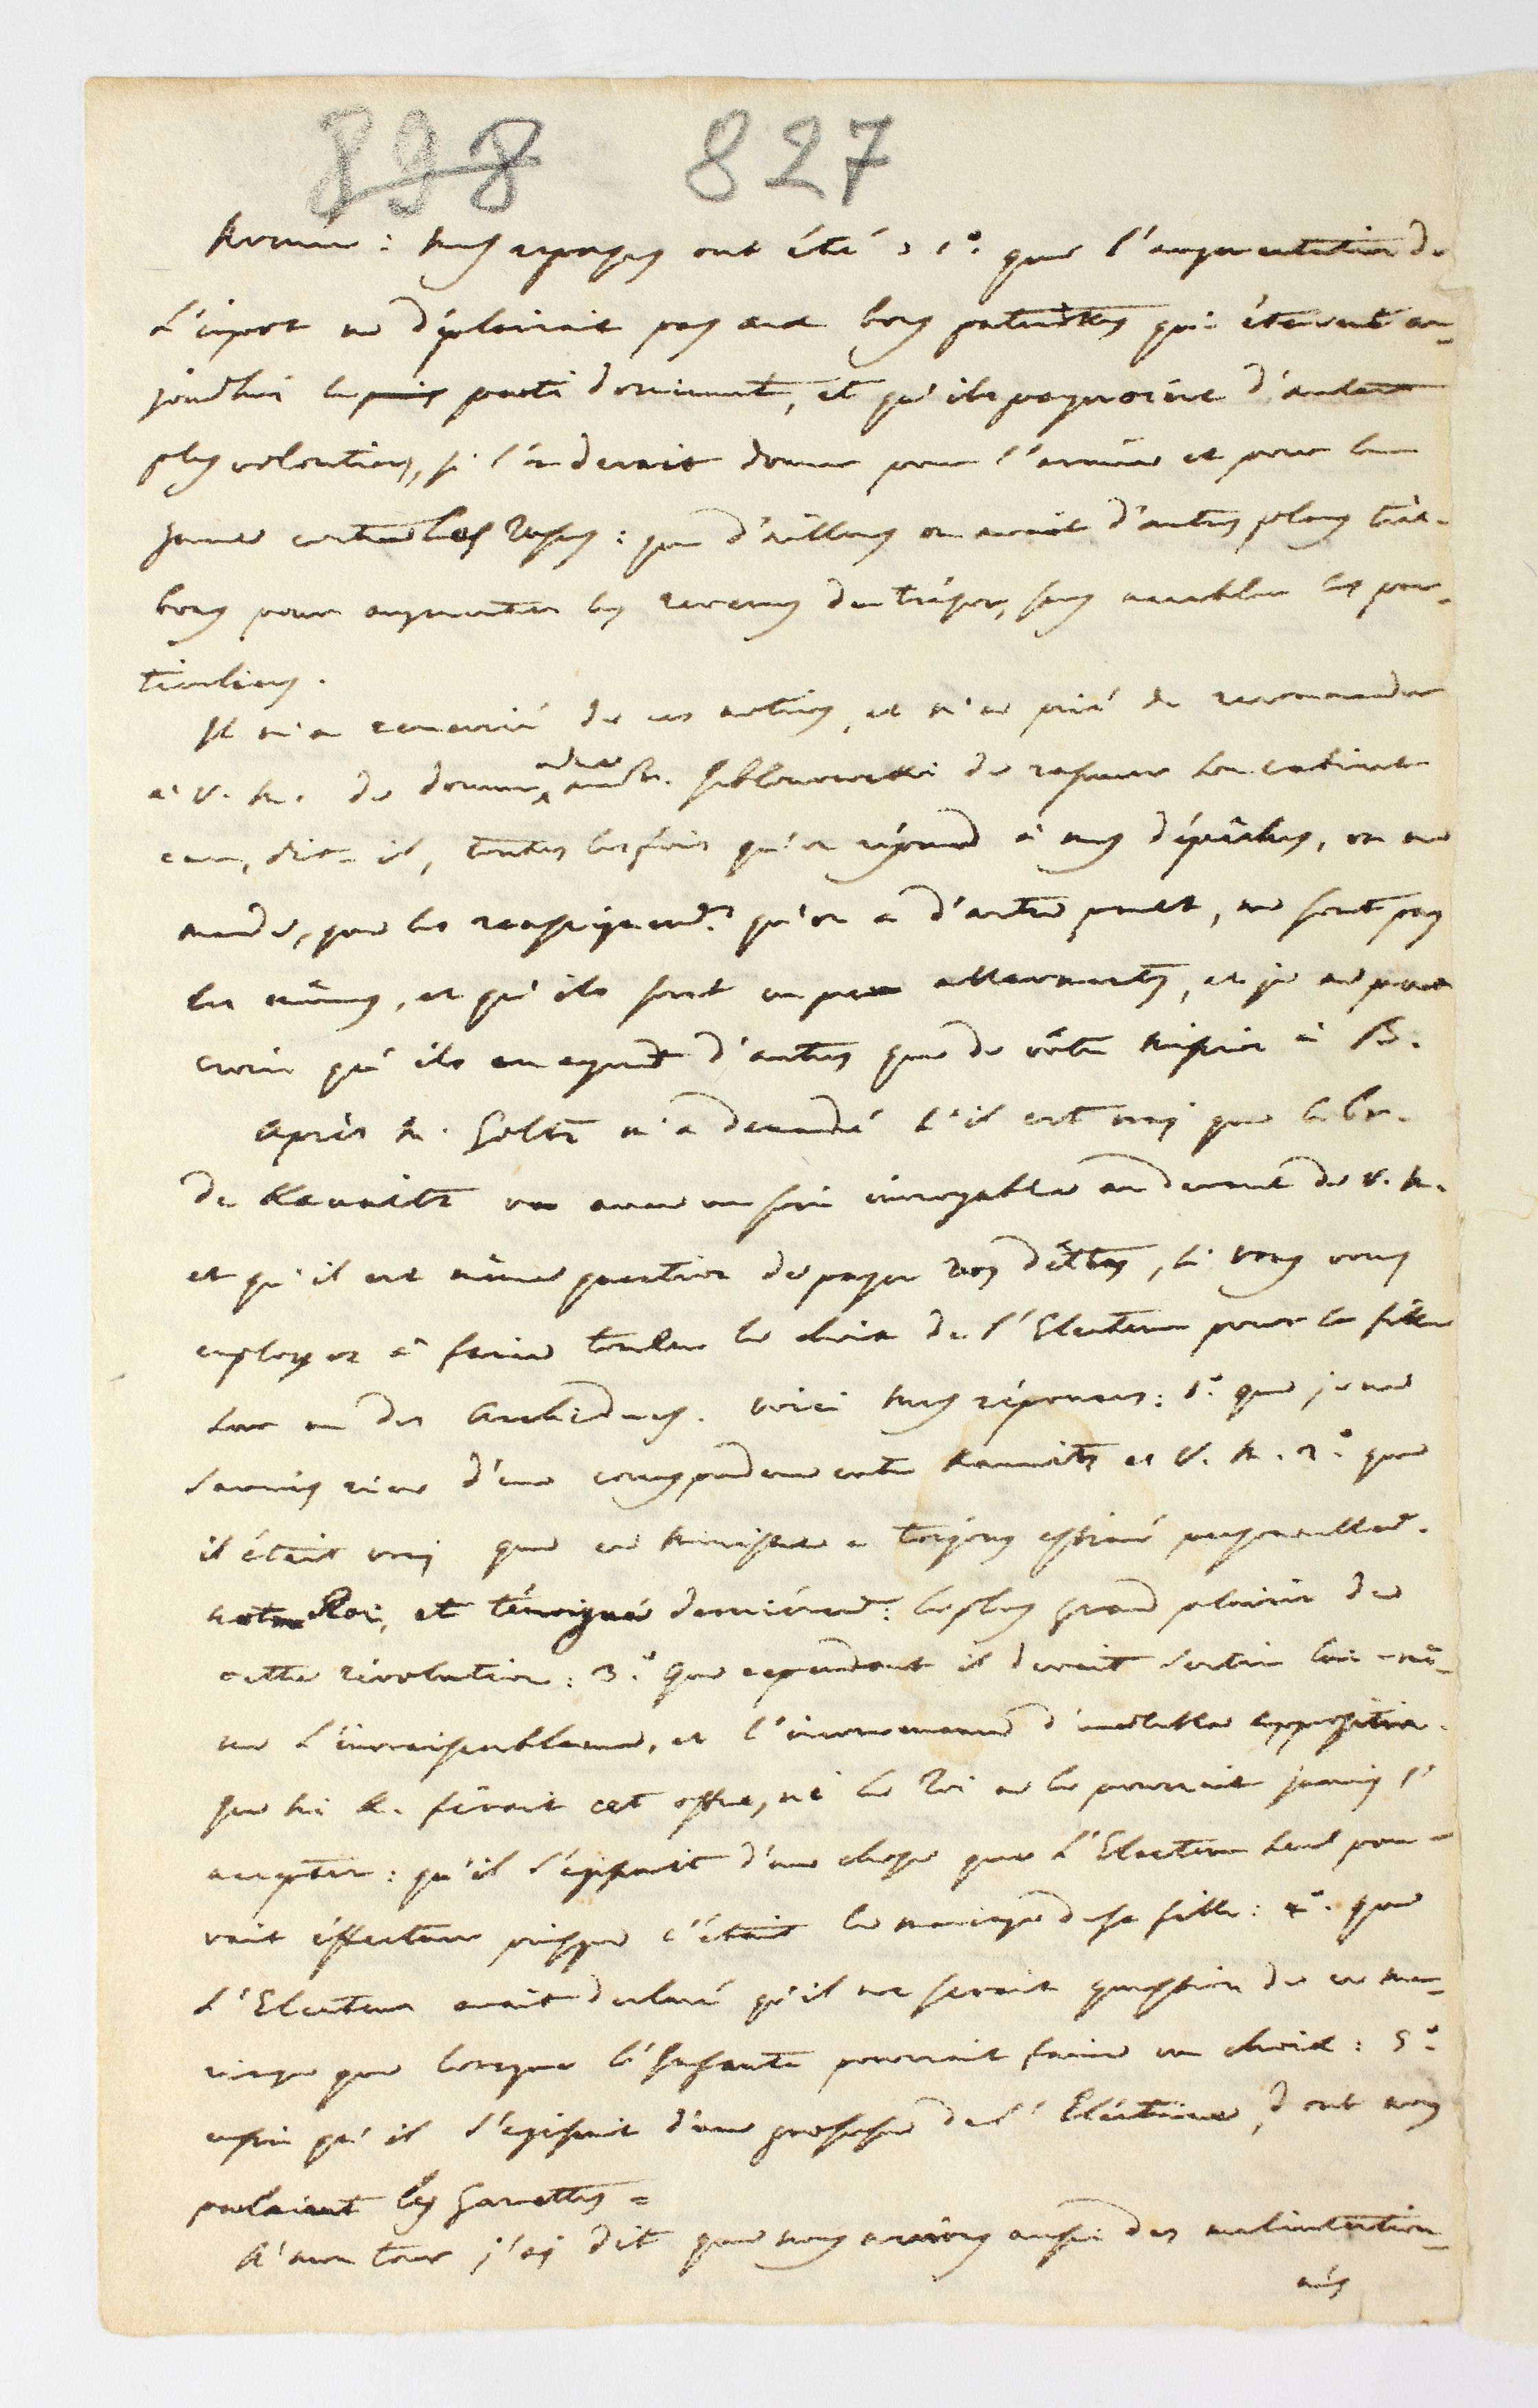 898 827
: Mes reponses ont été, 1º. que l'augmentation de
l'impot ne déplairait pas aux bons patriotes qui étaient au-
jourdhui le parti dominant, et qu'ils payeroient d'autant
plus volontiers, si l'on devait donner pour l'armée et pour la
guerre contre les Russes: que d'ailleurs on avait d'autres plans très-
bons pour augmenter les revenus du trésor, sans accabler les par-
ticuliers.
Il m'a remercié de ces notions, et m'a prié de recommander
à V. M. de donner à Jablonowski de rassurer son cabinet
car, dit-il, toutes les fois qu'on répond à mes dépêches, on me
mande, que les renseignemts. qu'on a d'autre part, ne sont pas
les mêmes, et qu'ils sont un peu allarmants, et je ne puis
croire qu'ils en ayent d'autres que de vôtre Mission à B.
Après M. Goltz m'a demandé s'il est vrai que le Pr.
de Kaunitz va avec un soin incroyable au devant de V. M.
et qu'il est même question de payer vos dettes, si vous vous
employez à faire tomber le choix de l'Electeur pour sa fille
sur un des Archiducs. voici mes réponses: 1º. que je ne
savais rien d'une correspondance entre Kaunitz et V. M. 2º. que
il était vrai que ce Ministre a toujours estimé personnellemt.
notre Roi, et témoigné dernièremt. le plus grand plaisir de
cette révolution: 3º. Que cependant il devait sentir lui-mê-
me l'invraisemblance, et l'inconvenance d'une telle supposition.
que ni K. feroit cet offre, ni le Roi ne le pourrait jamais l'
accepter: qu'il s'agissait d'une chose que l'Electeur seul pou-
vait effectuer puisque c'était le mariage de sa fille: 4º. que
l'Electeur avait declaré qu'il ne serait question de ce ma-
riage que lorsque l'Infante pourrait faire un choix: 5º.
enfin qu'il s'agissait d'une grossesse de l'Electrice, dont nous
parlaient les Gazettes =
A mon tour j'ai dit que nous avions aussi des malintention-
nés